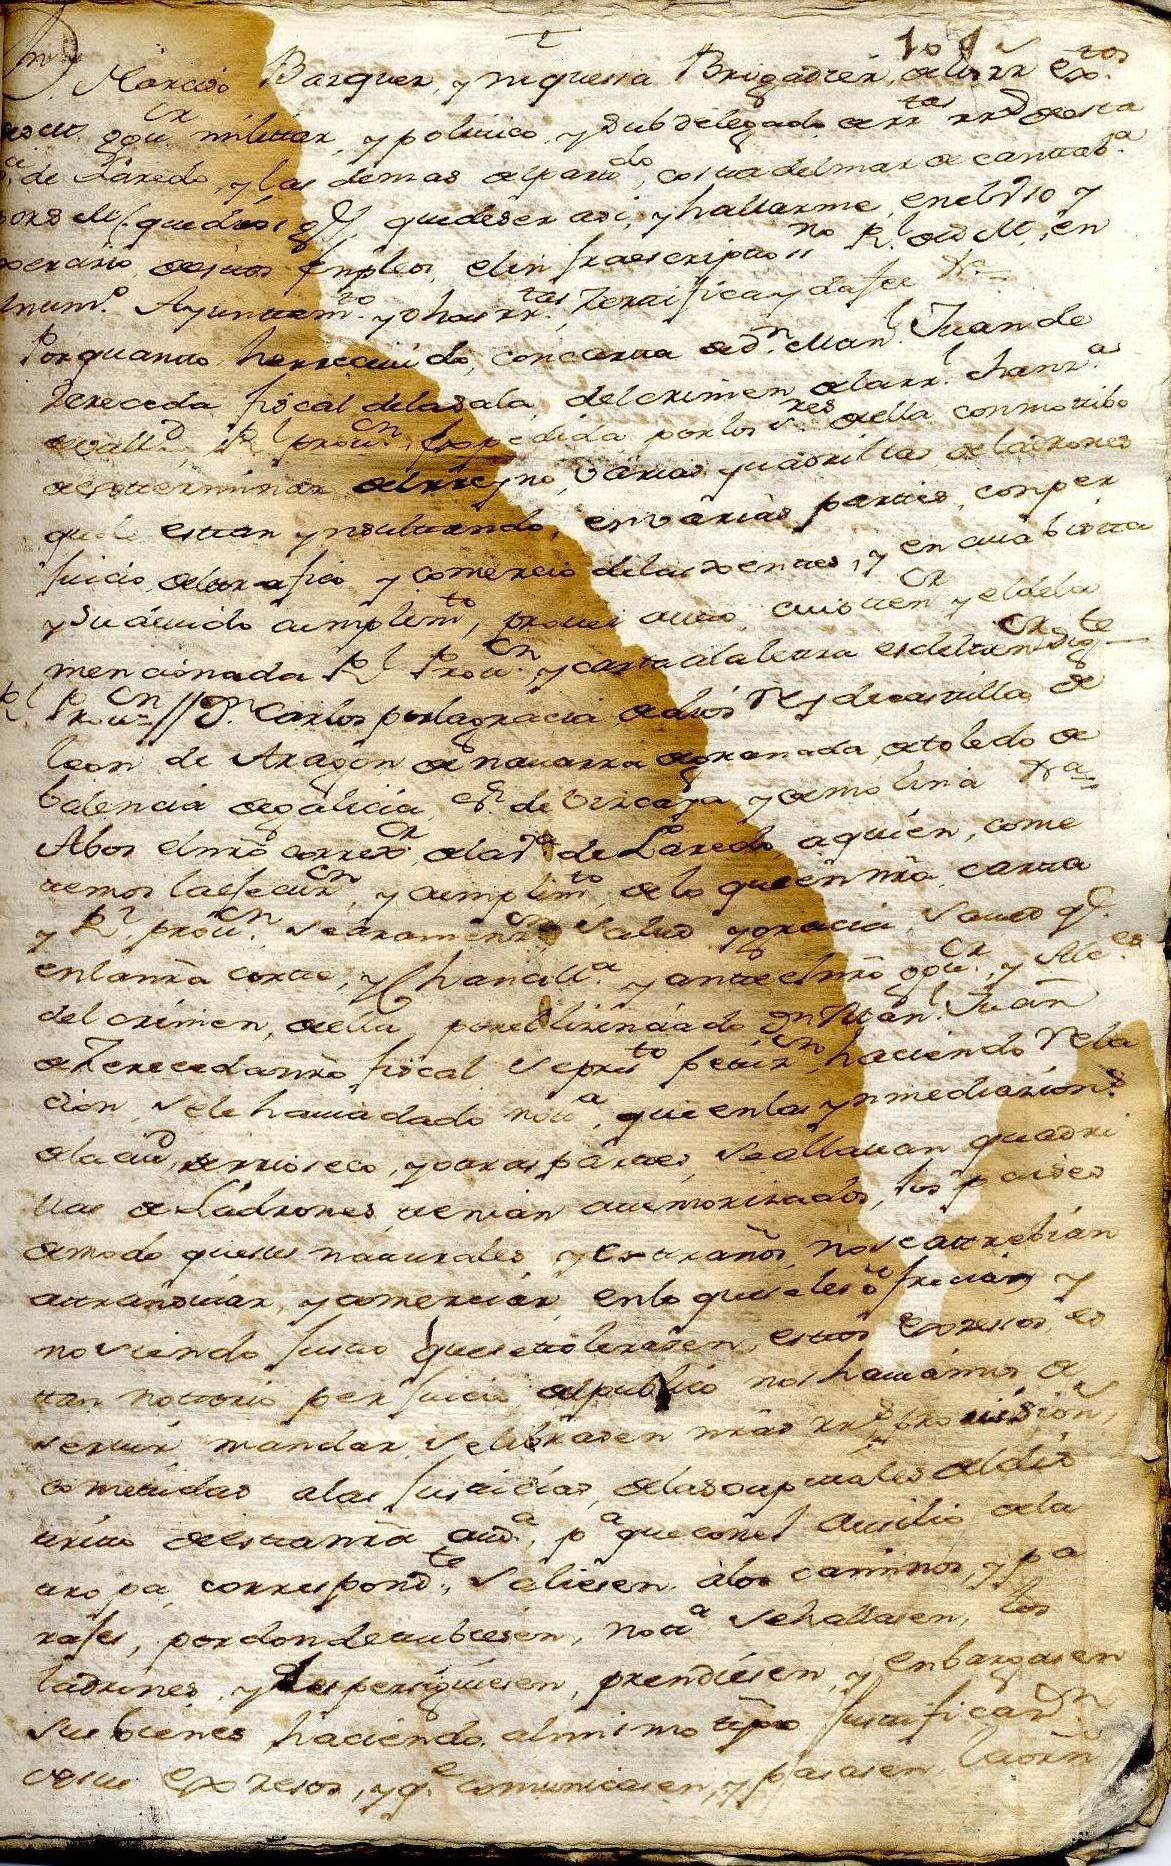 D. Narciso Bazquez, y niquesa Brigadier, de los rr. ex.tos
gov.or militar, y politico, y subdelegado de r.tas rr.s de esta
de Laredo, y las demas del part.do, costa del mar de cantab.a
que dios g.e, que de ser asi, y hallarme en el uso y
de sus Empleos, el infraescripto ss.no R.l de S. M. en
num.o Ayuntam.to y dhas rr.tas Zertifica y da fee &a
Por quanto he rreciuido, con carta de d.n Man.l Juan de
Zereceda fiscal dela sala, del crimen dela rr.l chanz.a
de vall.d, R.l prou.on, expedida por los s.res de ella con motibo
de exterminar del rreyno, varias quadrillas de ladrones
que le estan ynsultando, en varias partes, con per
juicio del trafico y comercio delas xentes, y en cuia bista
y su deuido cumplim.to, probei auto, cuio ten.or y el dela
mencionada R.l Prou.on y carta ala letra es del ten.or sig.te
R.l Prou.on // D.n Carlos por la gracia de dios Rey de castilla de
leon de Aragon de nauarra de granada, de toledo de
balencia de galicia, s.or de vizcaya y de molina &a
Abos el nro corre.or de la v.a de Laredo, a quien, come
temos la execu.on, y cumplim.to de lo que en nra carta
y R.l prou.on se ara men.on salud y gracia, saued q.e
en la nra corte, y Chancill.a y ante el nro gov.or, y Alc.es
del crimen, de ella, por el lizenciado d.n Man.l Juan
de Zereceda nro fiscal se pres.to peti.on haciendo Rela
cion, se le hauia dado not.a, que en las ynmediaciones
de la ciu.d de rrioseco, y otras partes, se allauan quadri
llas de Ladrones, tenian atemorizados, los paises
de modo que sus naturales y extraños, no se atrebian
a transitar, y comerciar, en lo que se les ofrecian y
no siendo justo que se tolerasen, estos excesos, es
tan notorio perjuicio del publico nos hauiamos de
seruir mandar, se librasen nras rr.s probisiones,
cometidas alas Justicias, delas capitales del dis
trito de esta nra aud.a, p.a que con el ausilio de la
tropa, correspond.te, saliesen, alos caminos, y pa
rajes, por donde tubiesen, not.a se hallasen, los
ladrones, y les persiguiesen, prendiesen, y enbargasen
sus bienes haciendo al mismo tpo justificaz.on
de sus excesos, y q.e comunicasen, y pasasen, la orn